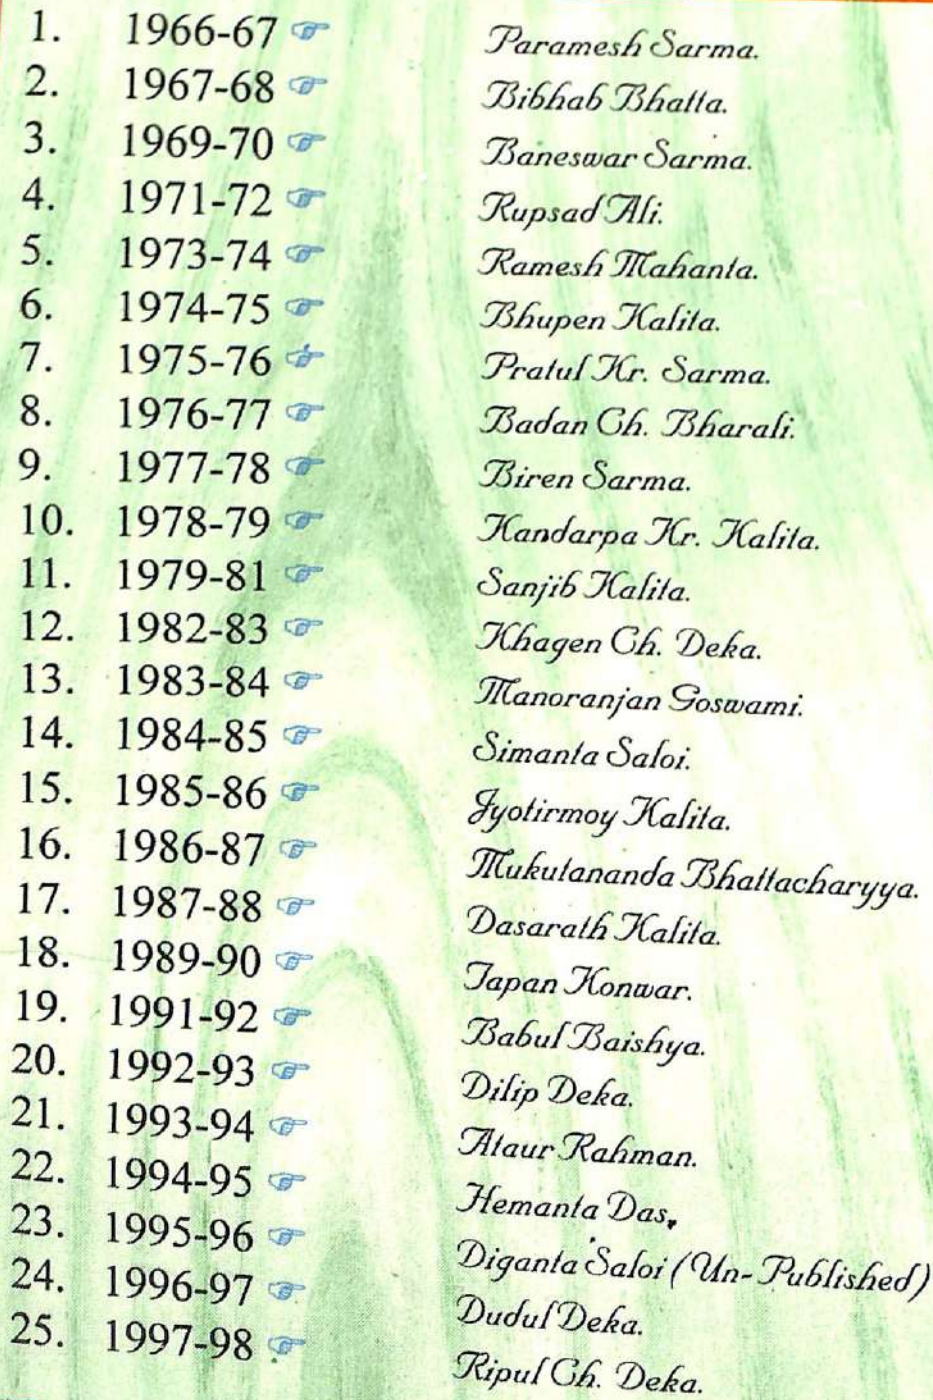 1. 1966-67 ☞ Paramesh Sarma.
2. 1967-68 ☞ Bibhab Bhatta.
3. 1969-70 ☞ Baneswar Sarma.
4. 1971-72 ☞ Rupsad Ali.
5. 1973-74 ☞ Ramesh Mahanta.
6. 1974-75 ☞ Bhupen Kalita.
7. 1975-76 ☞ Pratul Kr. Sarma.
8. 1976-77 ☞ Badan Ch. Bharali.
9. 1977-78 ☞ Biren Sarma.
10. 1978-79 ☞ Kandarpa Kr. Kalita.
11. 1979-81 ☞ Sanjib Kalita.
12. 1982-83 ☞ Khagen Ch. Deka.
13. 1983-84 ☞ Manoranjan Goswami.
14. 1984-85 ☞ Simanta Saloi.
15. 1985-86 ☞ Jyotirmoy Kalita.
16. 1986-87 ☞ Mukutananda Bhattacharyya.
17. 1987-88 ☞ Dasarath Kalita.
18. 1989-90 ☞ Tapan Konwar.
19. 1991-92 ☞ Babul Baishya.
20. 1992-93 ☞ Dilip Deka.
21. 1993-94 ☞ Ataur Rahman.
22. 1994-95 ☞ Hemanta Das.
23. 1995-96 ☞ Diganta Saloi (Un-Published)
24. 1996-97 ☞ Dudul Deka.
25. 1997-98 ☞ Ripul Ch. Deka.